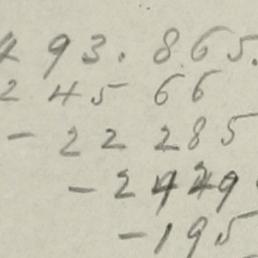 4 93. 865.
2 45 66
- 22 285
- 2429
- 195